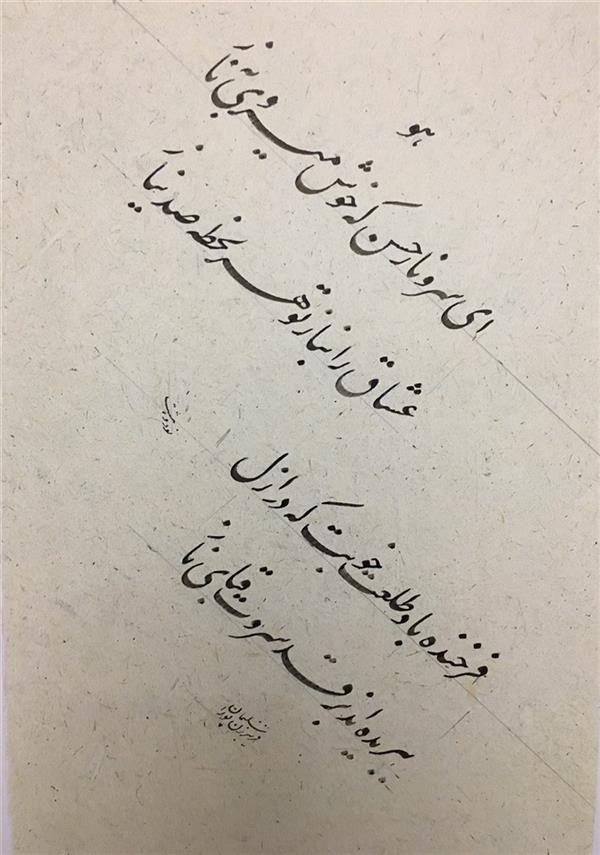 هو
ای سرو ناز حسن که خوش میروی به ناز
عشاق را بناز تو هر لحظه صد نیاز
فرخنده باد طلعت خوبت که در ازل
ببریده‌اند بر قد سروت قبای ناز